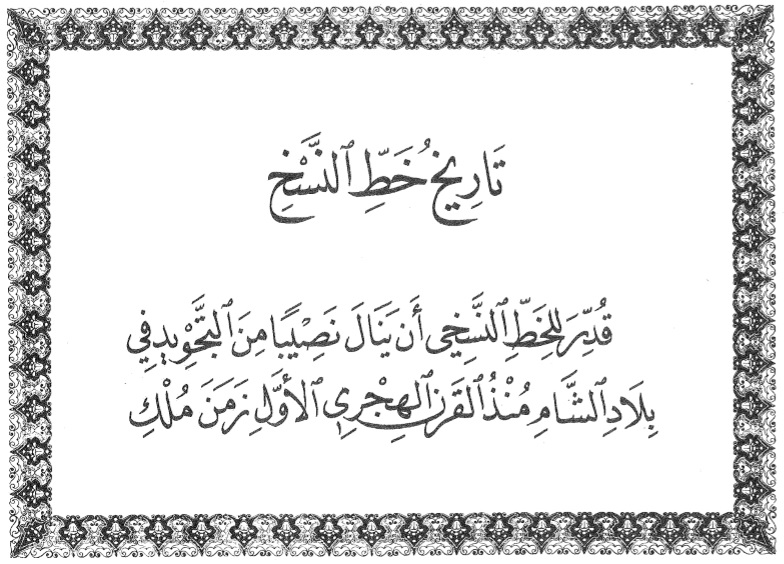 تَارِيخُ خَطِّ ٱلنَّسْخِ
قُدِّرَ لِلخَطِّ ٱلنَّسْخِي أَن يَنَالَ نَصِيْبًا مِنَ ٱلتَّجْوِيدِ فِي
بِلَادِ ٱلشَّامِ مُنْذُ ٱلقَرنِ ٱلهِجْرِي ٱلأوَّلِ زَمَنَ مُلْكِ